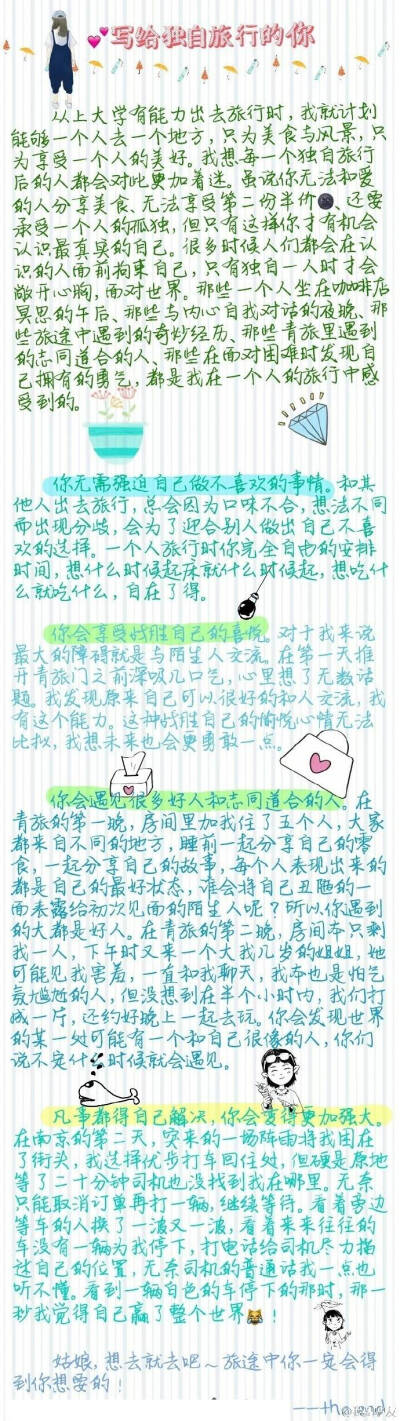 写给独自旅行的你
从上大学有能力出去旅行时，我就计划
能够一个人去一个地方，只为美食与风景，只
为享受一个人的美好。我想每一个独自旅行
后的人都会对此更加着迷。虽说你无法和爱
的人分享美食、无法享受第二份半价🌚、还要
承受一个人的孤独，但只有这样你才有机会
认识最真实的自己。很多时候人们都会在认
识的人面前拘束自己，只有独自一人时才会
敞开心胸，面对世界。那些一个人坐在咖啡店
冥思的午后、那些与内心自我对话的夜晚、那
些旅途中遇到的奇妙经历、那些青旅里遇到
的志同道合的人、那些在面对困难时发现自
己拥有的勇气，都是我在一个人的旅行中感
受到的。
你无需强迫自己做不喜欢的事情。和其
他人出去旅行，总会因为口味不合，想法不同
而出现分歧，会为了迎合别人做出自己不喜
欢的选择。一个人旅行时你完全自由的安排
时间，想什么时候起床就什么时候起，想吃什
么就吃什么，自在了得。
你会享受战胜自己的喜悦。对于我来说
最大的障碍就是与陌生人交流。在第一天推
开青旅门之前深吸几口气，心里想了无数话
题。我发现原来自己可以很好的和人交流，我
有这个能力。这种战胜自己的愉悦心情无法
比拟，我想未来也会更勇敢一点。
你会遇见很多好人和志同道合的人。在
青旅的第一晚，房间里加我住了五个人，大家
都来自不同的地方，睡前一起分享自己的零
食，一起分享自己的故事，每个人表现出来的
都是自己的最好状态，谁会将自己丑陋的一
面表露给初次见面的陌生人呢？所以你遇到
的大都是好人。在青旅的第二晚，房间本只剩
我一人，下午时又来一个大我几岁的姐姐，她
可能见我害羞，一直和我聊天，我本也是怕气
氛尴尬的人，但没想到在半个小时内，我们打
成一片，还约好晚上一起去玩。你会发现世界
的某一处可能有一个和自己很像的人，你们
说不定什么时候就会遇见。
凡事都得自己解决，你会变得更加强大。
在南京的第二天，突来的一场阵雨将我困在
了街头，我选择优步打车回住处，但硬是原地
等了二十分钟司机也没找到我在哪里。无奈
只能取消订单再打一辆，继续等待。看着旁边
等车的人换了一波又一波，看着来来往往的
车没有一辆为我停下，打电话给司机尽力描
述自己的位置，无奈司机的普通话我一点也
听不懂。看到一辆白色的车停下的那时，那一
秒我觉得自己赢了整个世界😹！
姑娘，想去就去吧～旅途中你一定会得
到你想要的！